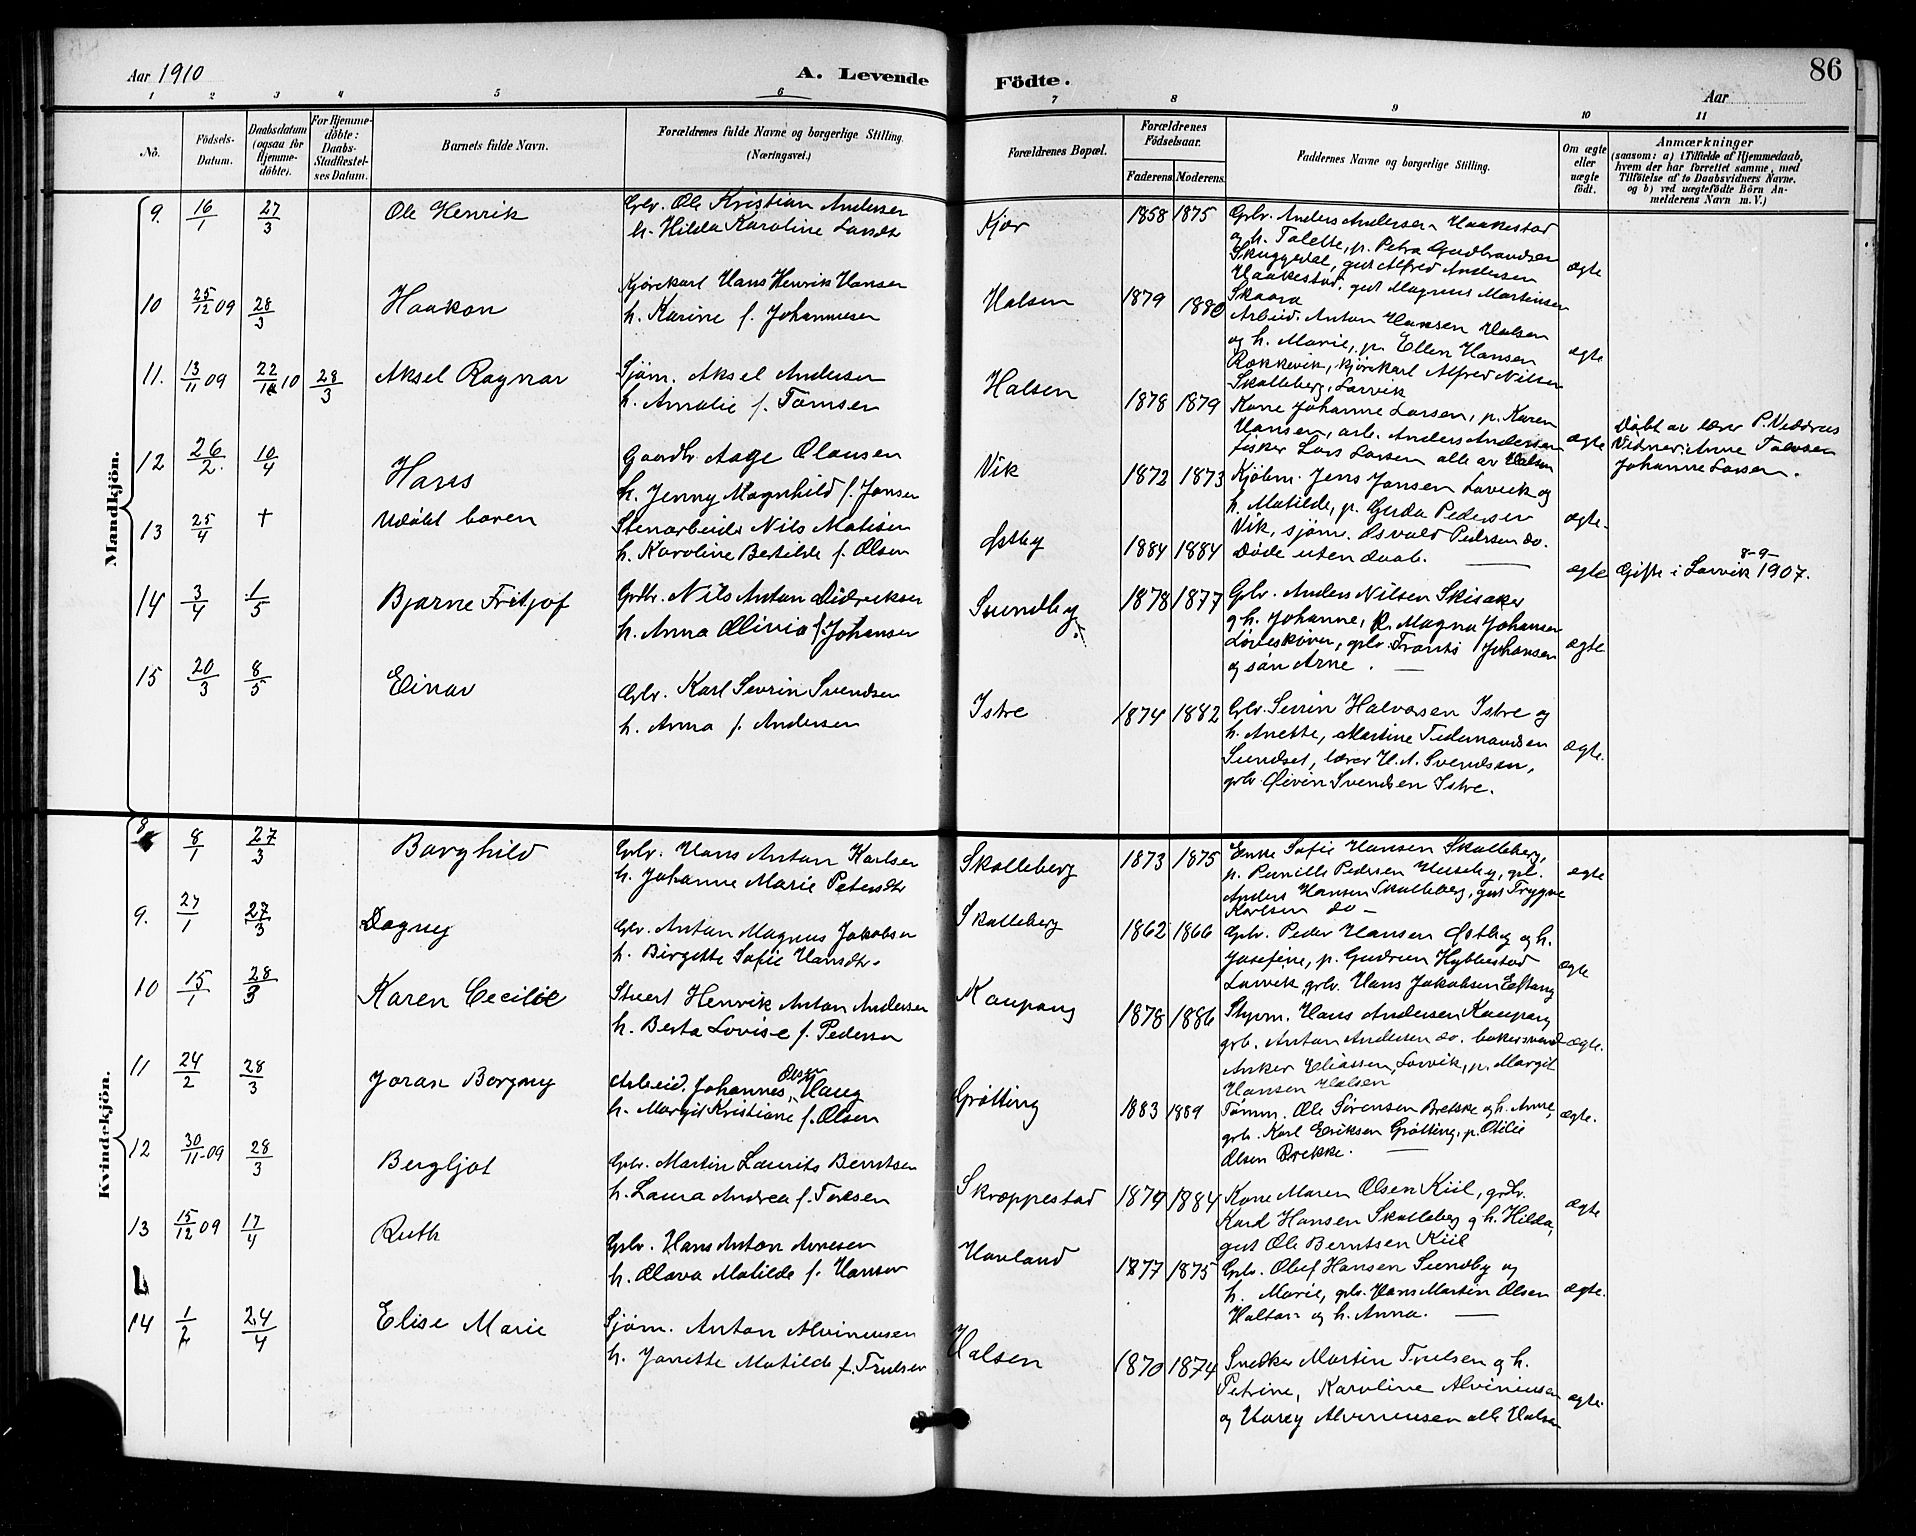 Aar 1910
A. Levende
Födte.
Aar
86
1 2 3 4 5 6 7 8 9 10 11
No.
Födsels-
Datum.
Daabsdatum
(ogsaa for
Hjemme-
döbte).
For Hjemme-
döbte:
Daabs-
Stadfæstel-
ses Datum.
Barnets fulde Navn.
Forældrenes fulde Navne og borgerlige Stilling.
(Næringsvei.)
Forældrenes Bopæl.
Forældrenes
Födselsaar.
Faderens.
Moderens.
Faddernes Navne og borgerlige Stilling.
Om ægte
eller
uægte
födt.
Anmærkninger
(saasom: a) i Tilfælde af Hjemmedaab,
hvem der har forrettet samme, med
Tilföielse af to Daabsvidners Navne.
og b) ved uægtefödte Börn An-
melderens Navn m. V.)
Mandkjön.
9. 16/1 27/3 Ole Henrik
Gbr. Ole Kristian Andersen
h. Hilda Karoline Larsdt.
Kjær 1858 1875
Gbr. Anders Andersen Haakestad
og h. Talette, p. Petra Gudbrandsen
Skuggedal, gut Alfred Andersen
Haakestad, gut Magnus Martinsen
Skaara
ægte
10 25/12 09 28/3 Haakon
Kjørekarl Hans Henrik Hansen
h. Karine f. Johannesen
Halsen 1879 1880
Arbeid. Anton Hansen Halsen
og h. Marie, p. Ellen Hansen
Rækkevik, kjørekarl Alfred Nilsen
Skalleberg, Larvik
ægte
11. 13/11 09 22/1 10 28/3 Aksel Ragnar
Sjøm. Aksel Andersen
h. Amalie f. Tomsen
Halsen 1878 1879
Kone Johanne Larsen, p. Karen
Hansen, arb. Anders Andersen
fisker Lars Larsen alle av Halsen
ægte
Døbt av lærer P.
Vidner: Anne
Johanne Larsen.
12 26/2. 10/4 Hans
Gaardbr. Aage Olausen
h. Jenny Magnhild f. Jansen
Vik 1872 1873
Kjøbm. Jens Jansen Larvik og
h. Matilde, p. Gerda Pedersen
Vik, sjøm. Osvald Pedersen do.
ægte.
13 25/4 † Udøbt barn
Stenarbeider Nils Matisen
h. Karoline Bertilde f. Olsen
Østby 1884 1884
Døde uten daab.
ægte
Gifte i Larvik 8-9- 1907.
14 3/4 1/5 Bjarne Fritjof
Grdbr. Nils Anton Didreksen
h. Anna Olivia f. Johansen
Sundby 1878 1877
Gbr. Anders Nilsen Skisaker
og h. Johanne, p. Magna Johansen
Løveskoven, gbr. Frants Johansen
og søn Arne.
ægte
15 20/3 8/5 Einar
Gbr. Karl Sevrin Svendsen
h. Anna f. Andersen
Istre 1874 1882
Gbr. Sevrin Halvorsen Istre og
h. Anette, Martine Tidemandsen
Sundset, lærer H. A. Svendsen,
gbr. Eivin Svendsen Istre.
ægte.
Kvindekjön.
8 8/1 27/3 Borghild
Gbr. Hans Anton Karlsen
h. Johanne Marie Petersdt.
Skalleberg 1873 1875
Enke Sofie Hansen Skalleberg,
p. Pernille Pedersen Huseby, gbr.
Anders Hansen Skalleberg, gut Trygve
Karlsen do –
ægte
9. 27/1 27/3 Dagny
Gbr. Anton Magnus Jakobsen
h. Birgette Sofie Hansdt.
Skalleberg 1862 1866
Gbr. Peder Hansen Østby og h.
Josefine, p. Gudrun Hybbestad
Larvik, gbr. Hans Jakobsen Eftang
ægte
10 15/1 28/3 Karen Cecilie
Stuert Henrik Anton Andersen
h. Berta Lovise f. Pedersen
Kaupang 1878 1886
Styrm. Hans Andersen Kaupang
gbr. Anton Andersen do. bakersvend
Anker Eliassen, Larvik, p. Margit
Hansen Halsen
ægte.
11 24/2 28/3 Joran Borgny
Arbeid. Johannes Olsen Haug
h. Margit Kristiane f. Olsen
Grøtting 1883 1889
Tømm. Ole Sørensen Brekke og h. Anne,
gbr. Karl Eriksen Grøtting, p. Otilie
Olsen Brekke.
ægte.
12 30/11-09 28/3 Bergljot
Gbr. Martin Laurits Berntsen
h. Laura Andrea f. Torsen
Skræppestad 1879 1884
Kone Maren Olsen Kiil, grdbr.
Karl Hansen Skalleberg og h. Hilda,
gut Ole Berntsen Kiil
ægte
13 15/12 09 17/4 Ruth
Gbr. Hans Anton Arnesen
h. Olava Matilde f. Hansen
Havland 1877 1875
Gbr. Oluf Hansen Sundby og
h. Marie, gbr. Hans Martin Olsen
Haltan og h. Anna.
ægte.
L
14 1/2 24/4 Elise Marie
Sjøm. Anton Alvinusen
h. Janette Matilde f. Trulsen
Halsen 1870 1874
Snedker Martin Trulsen og h.
Petrine, Karoline Alvinusen
og Harry Alvinusen alle Halsen
ægte.